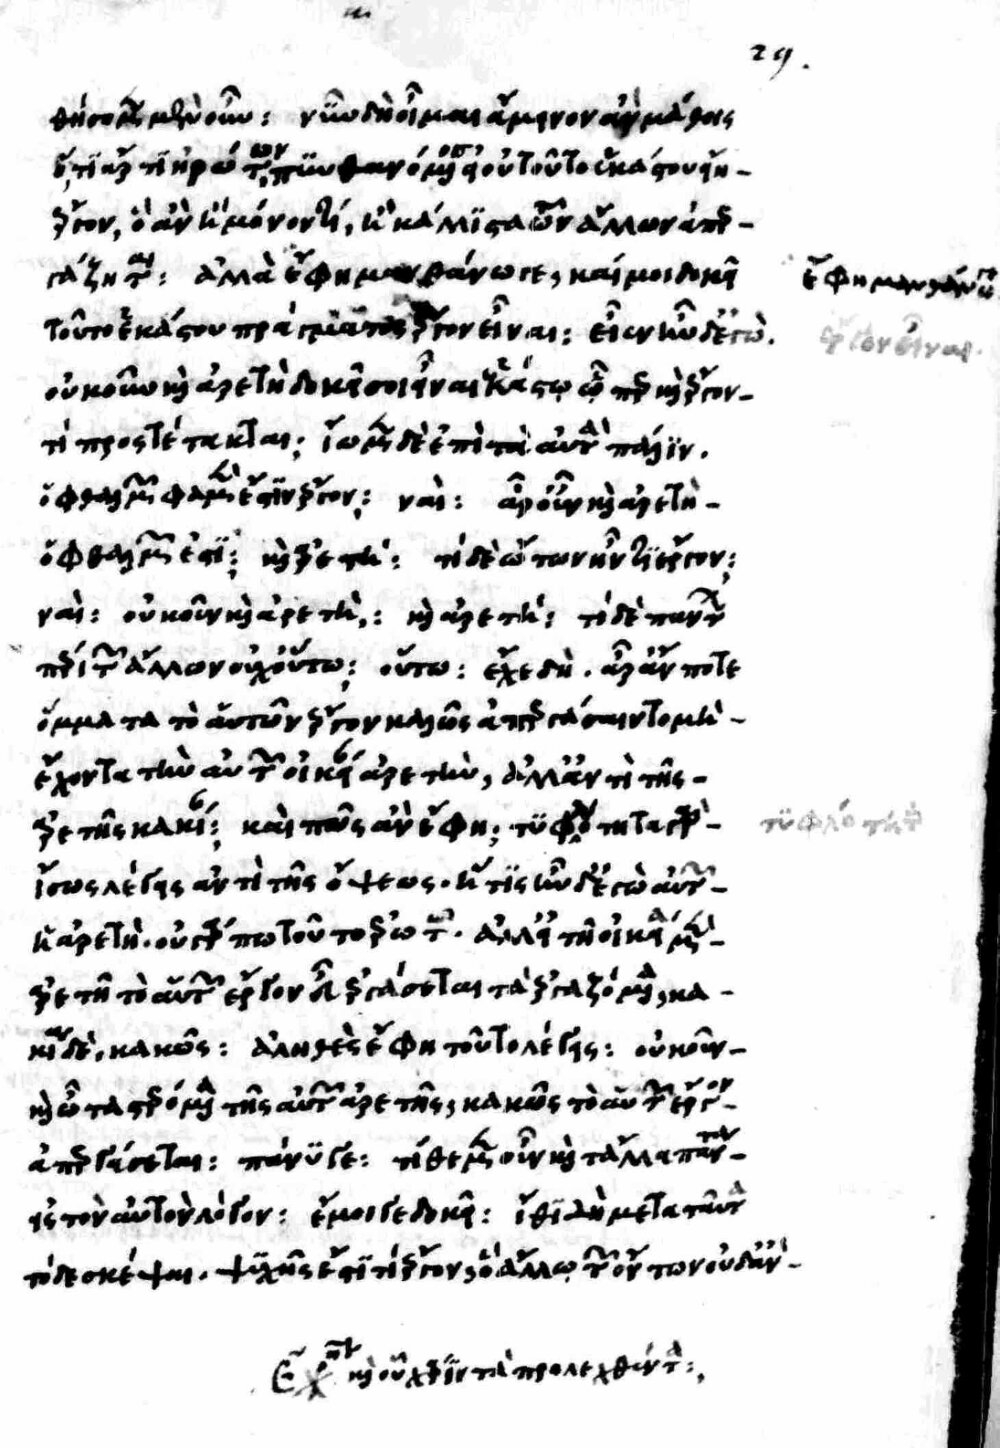 29.
θήσομεν μὲν οὖν: νῦν δὴ οἶμαι ἄμεινον ἂν μάθοις
ὅ,τι ἄρτι ἠρώτων, πυνθανόμενος εἰ οὐ τοῦτο ἑκάστου εἴη
ἔργον, ὃ ἂν ἢ μόνον τὶ, ἢ κάλλιστα τῶν ἄλλων ἀπερ-
γάζηται: ἀλλὰ ἔφη μανθάνω τε, καί μοι δοκεῖ
ἔφη μανθάνω
τοῦτο ἑκάστου πράγματος ἔργον εἶναι: εἶεν ἦν δ' ἐγώ.
ἔργον εἶναι.
οὐκοῦν καὶ ἀρετὴ δοκεῖ σοι εἶναι ἑκάστῳ ᾧπερ καὶ ἔργον
τί προστέτακται; ἴωμεν δὲ ἐπὶ τὰ αὐτὰ πάλιν.
ὀφθαλμῶν φαμὲν ἔστιν ἔργον; ναί: ἆρ' οὖν καὶ ἀρετὴ
ὀφθαλμῶν ἐστι; καὶ ἀρετή: τί δὲ ὤτων ἦν τι ἔργον;
ναί: οὐκοῦν καὶ ἀρετή; καὶ ἀρετή: τὸ δὲ πάντων
πέρι τῶν ἄλλων οὐχ οὕτω; οὕτω: ἔχε δή. ἆρ' ἄν ποτε
ὄμματα τὸ αὑτῶν ἔργον καλῶς ἀπεργάσαιντο μὴ
ἔχοντα τὴν αὑτῶν οἰκείαν ἀρετὴν, ἀλλ' ἀντὶ τῆς
ἀρετῆς κακίαν; καὶ πῶς ἂν ἔφη; τυφλότητα γὰρ
τυφλότητα
ἴσως λέγεις ἀντὶ τῆς ὄψεως. ἥτις ἦν δ' ἐγὼ αὐτῶν
ἡ ἀρετή. οὐ γάρ πω τοῦτο ἐρωτῶ. ἀλλ' εἰ τῇ οἰκείᾳ μὲν
ἀρετῇ τὸ αὑτῶν ἔργον εὖ ἐργάσεται τὰ ἐργαζόμενα, κα-
κίᾳ δὲ, κακῶς: ἀληθὲς ἔφη τοῦτο λέγεις: οὐκοῦν
καὶ ὦτα στερόμενα τῆς αὑτῶν ἀρετῆς, κακῶς τὸ αὑτῶν ἔργον
ἀπεργάσεται: πάνυ γε: τίθεμεν οὖν καὶ τἆλλα πάντα
εἰς τὸν αὐτὸν λόγον: ἔμοιγε δοκεῖ: ἴθι δὴ μετὰ ταῦτα
τόδε σκέψαι. ψυχῆς ἔστι τί ἔργον, ὃ ἄλλῳ τῶν ὄντων οὐδ' ἂν